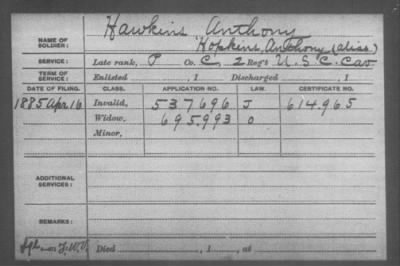 NAME OF SOLDIER: Hawkins Anthony
Hopkins, Anthony (alias)
SERVICE: Late rank, P Co. C, 2 Reg't U.S.C. Cav
TERM OF SERVICE: Enlisted , 1 Discharged , 1
DATE OF FILING. CLASS. APPLICATION NO. LAW. CERTIFICATE NO.
1885 Apr 16 Invalid, 537696 J 614.965
Widow, 695.993 O
Minor,
ADDITIONAL SERVICES:
REMARKS:
Died , 1 , at